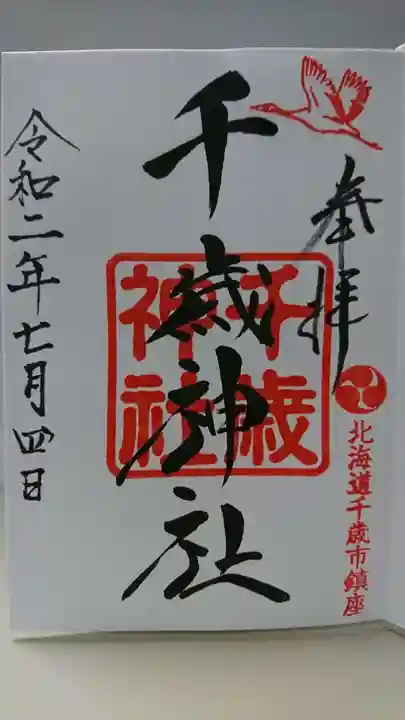 奉拝
北海道千歳市鎮座
千歳神社
千歳
神社
令和二年七月四日